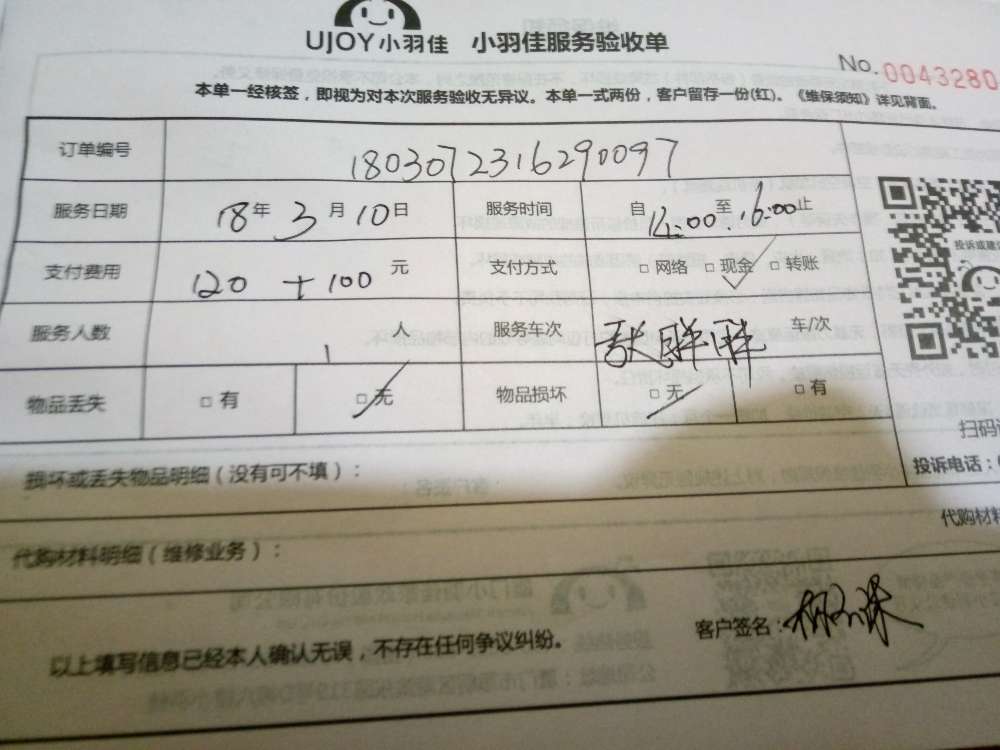 UJOY小羽佳 小羽佳服务验收单
No.0043280
本单一经核签，即视为对本次服务验收无异议。本单一式两份，客户留存一份(红)。《维保须知》详见背面。
订单编号 1803072316290097
服务日期 18年 3月 10日 服务时间 自 12:00 至 16:00止
支付费用 120 + 100 元 支付方式 □网络 □现金 □转账
服务人数 1 人 服务车次 车/次
物品丢失 □有 □无 物品损坏 □无 □有
投诉或建议
扫码
投诉电话：
损坏或丢失物品明细（没有可不填）：
代购材料
代购材料明细（维修业务）：
以上填写信息已经本人确认无误，不存在任何争议纠纷。
客户签名：